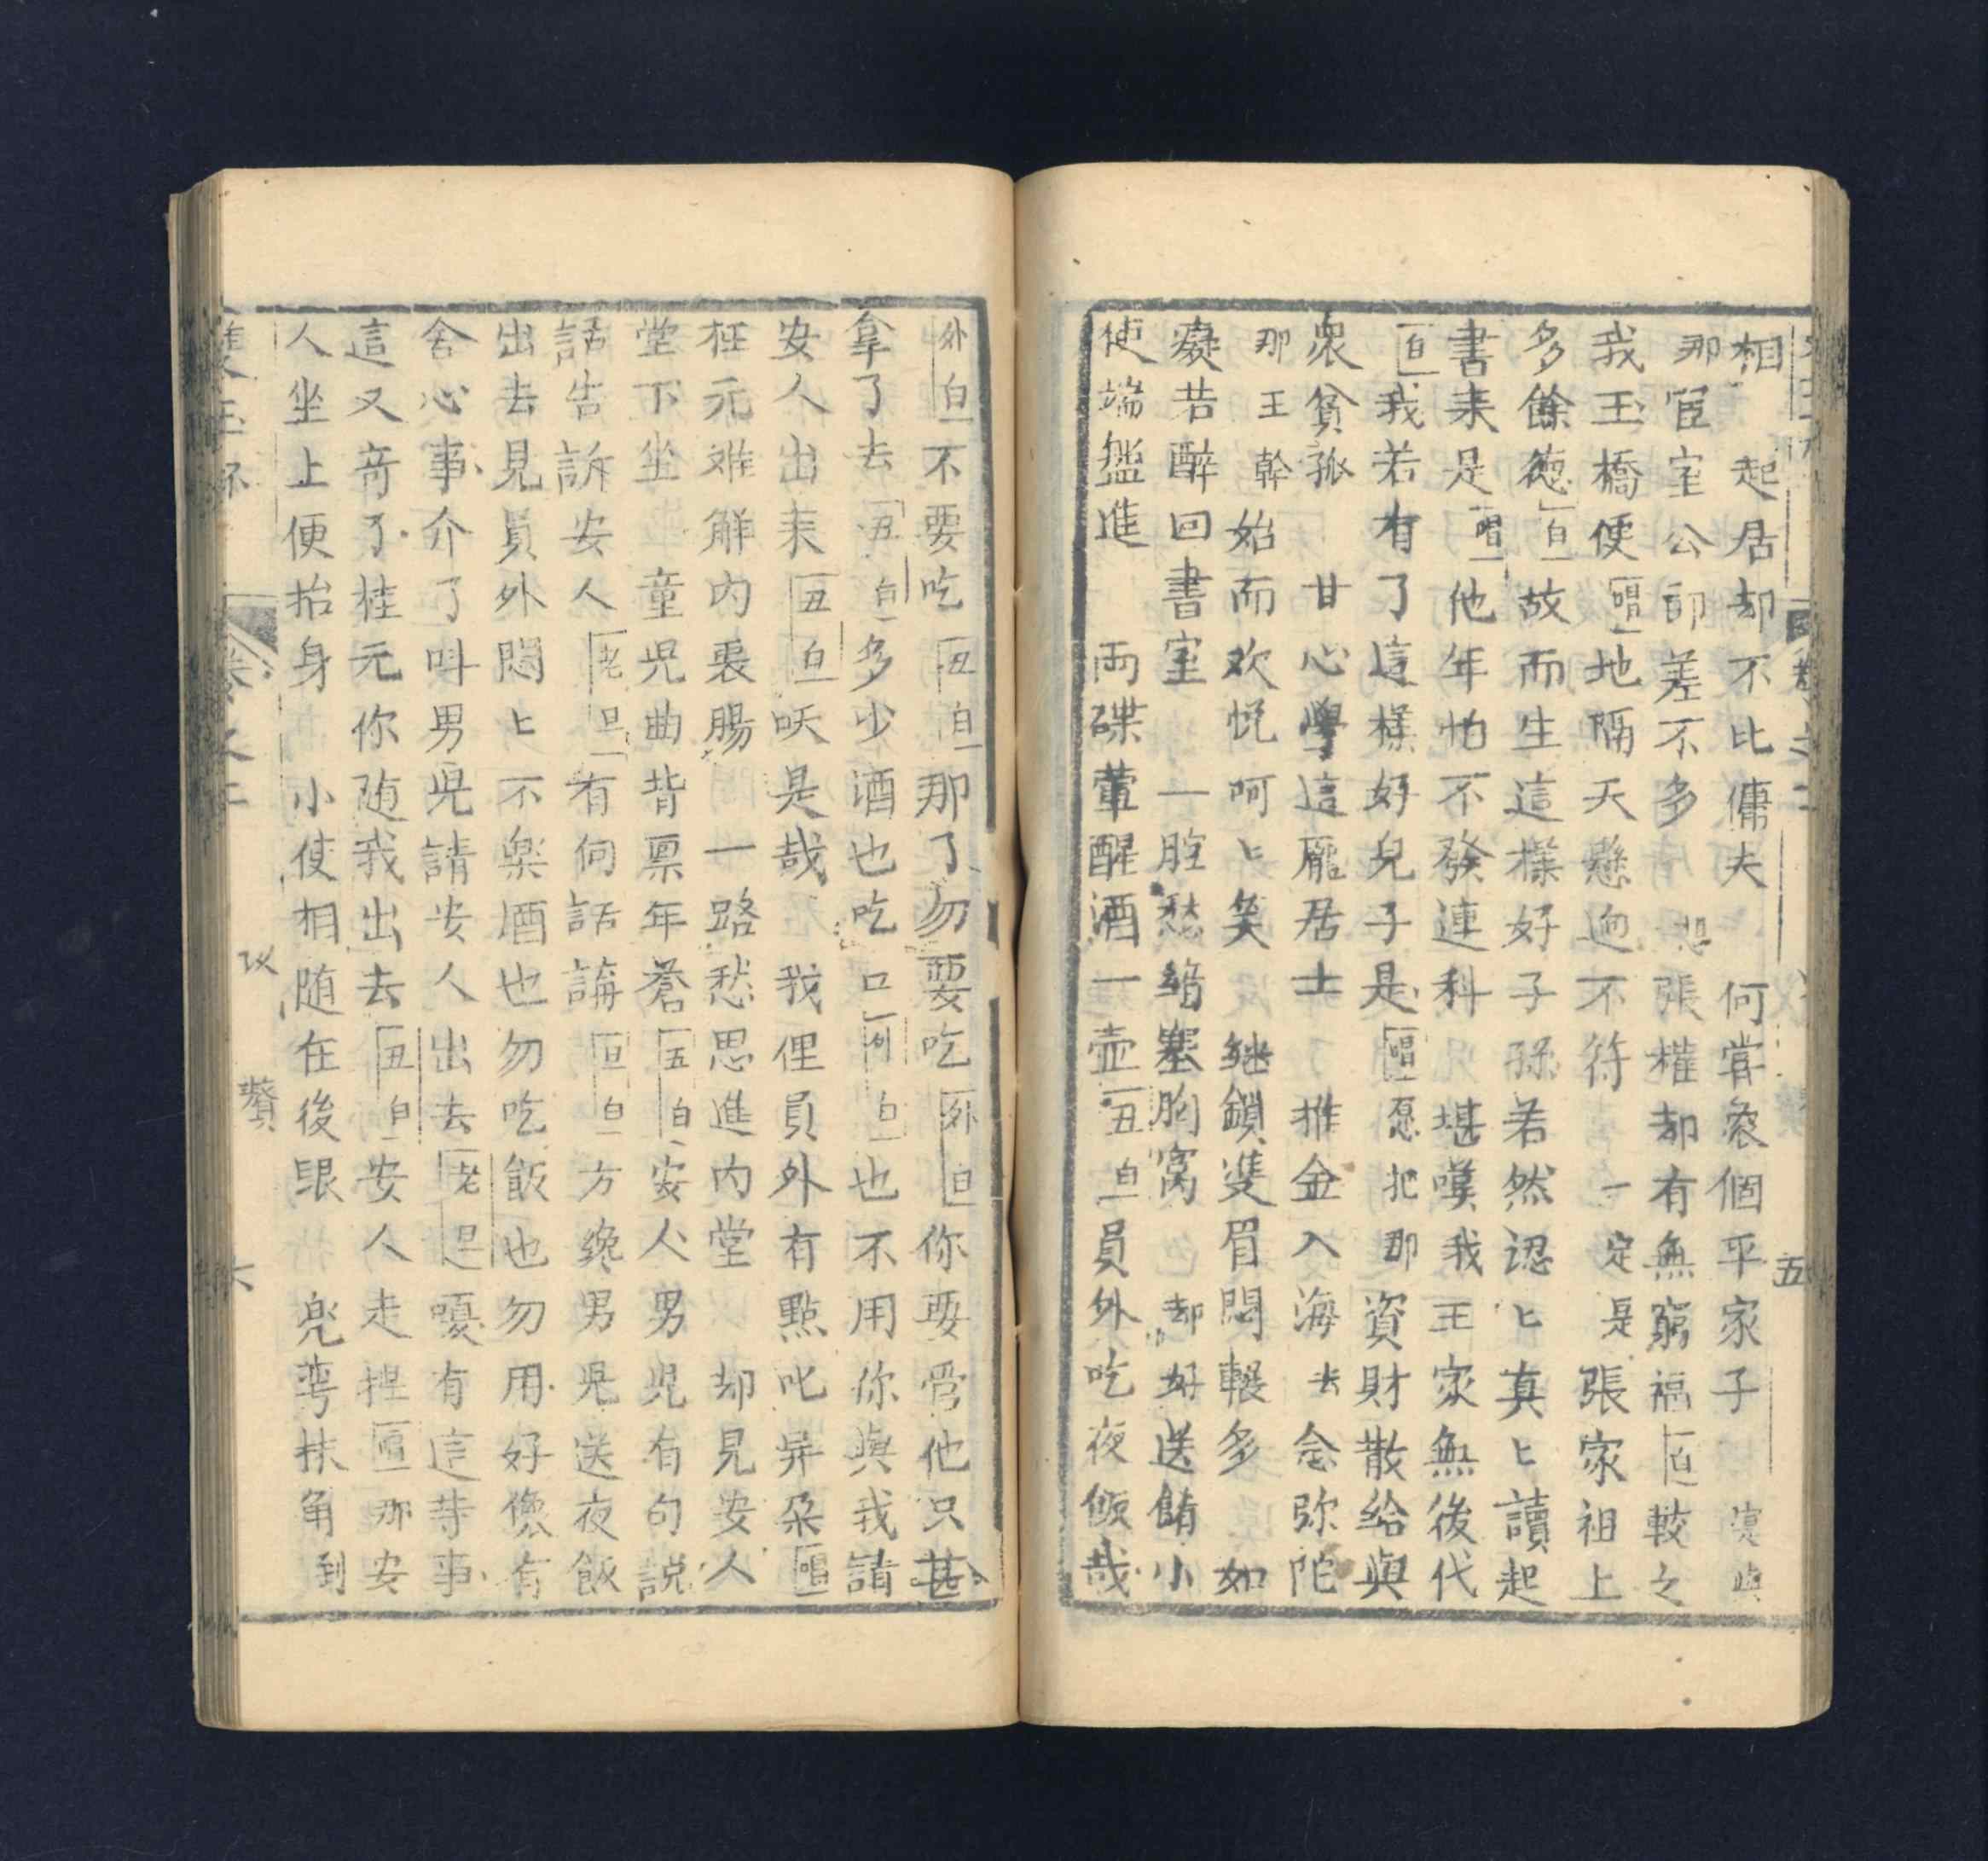 五
相起居却不比傭夫　何嘗衆個平家子
那宦室公卿差不多　張權却有無窮福白較之
我王橋便唱地隔天懸迥不符一定是張家祖上
多餘德白故而生這樣好子孫若然認ヒ真ヒ讀起
書来是唱他年怕不發連科堪嘆我王家無後代
白我若有了這様好兒子是唱愿把那資財散給與
衆貧孤　甘心學這龐居士　推金入海去念弥陀
那王幹始而欢悦呵ヒ矣　継鎖雙眉悶輾多　如
癡若醉回書室　一腔愁緒塞胸窩　却好送餚小
使端盤進　両碟葷醒酒一壶丑白員外吃夜飯哉
外白不要吃丑白那了勿要吃外白你要管他只甚
拿了去丑白多少酒也吃口外白也不用你與我請
安人出来丑白呋是哉　我俚員外有點叱异朶唱
桂元难觧内裏腸　一路愁思進内堂　却見安人
堂下坐　童児曲背禀年蒼丑白安人男児有句説
話告訴安人老旦有何話講丑白方纔男児送夜飯
出去見員外悶ヒ不樂酒也勿吃飯也勿用好像有
舍心事介了呌男児請安人出去老旦嗄有這等事
這又奇了桂元你随我出去丑白安人走捏唱那安
人坐上便抬身　小使相随在後跟　兜弯抹角到
雙玉杯
卷之二
贅
六